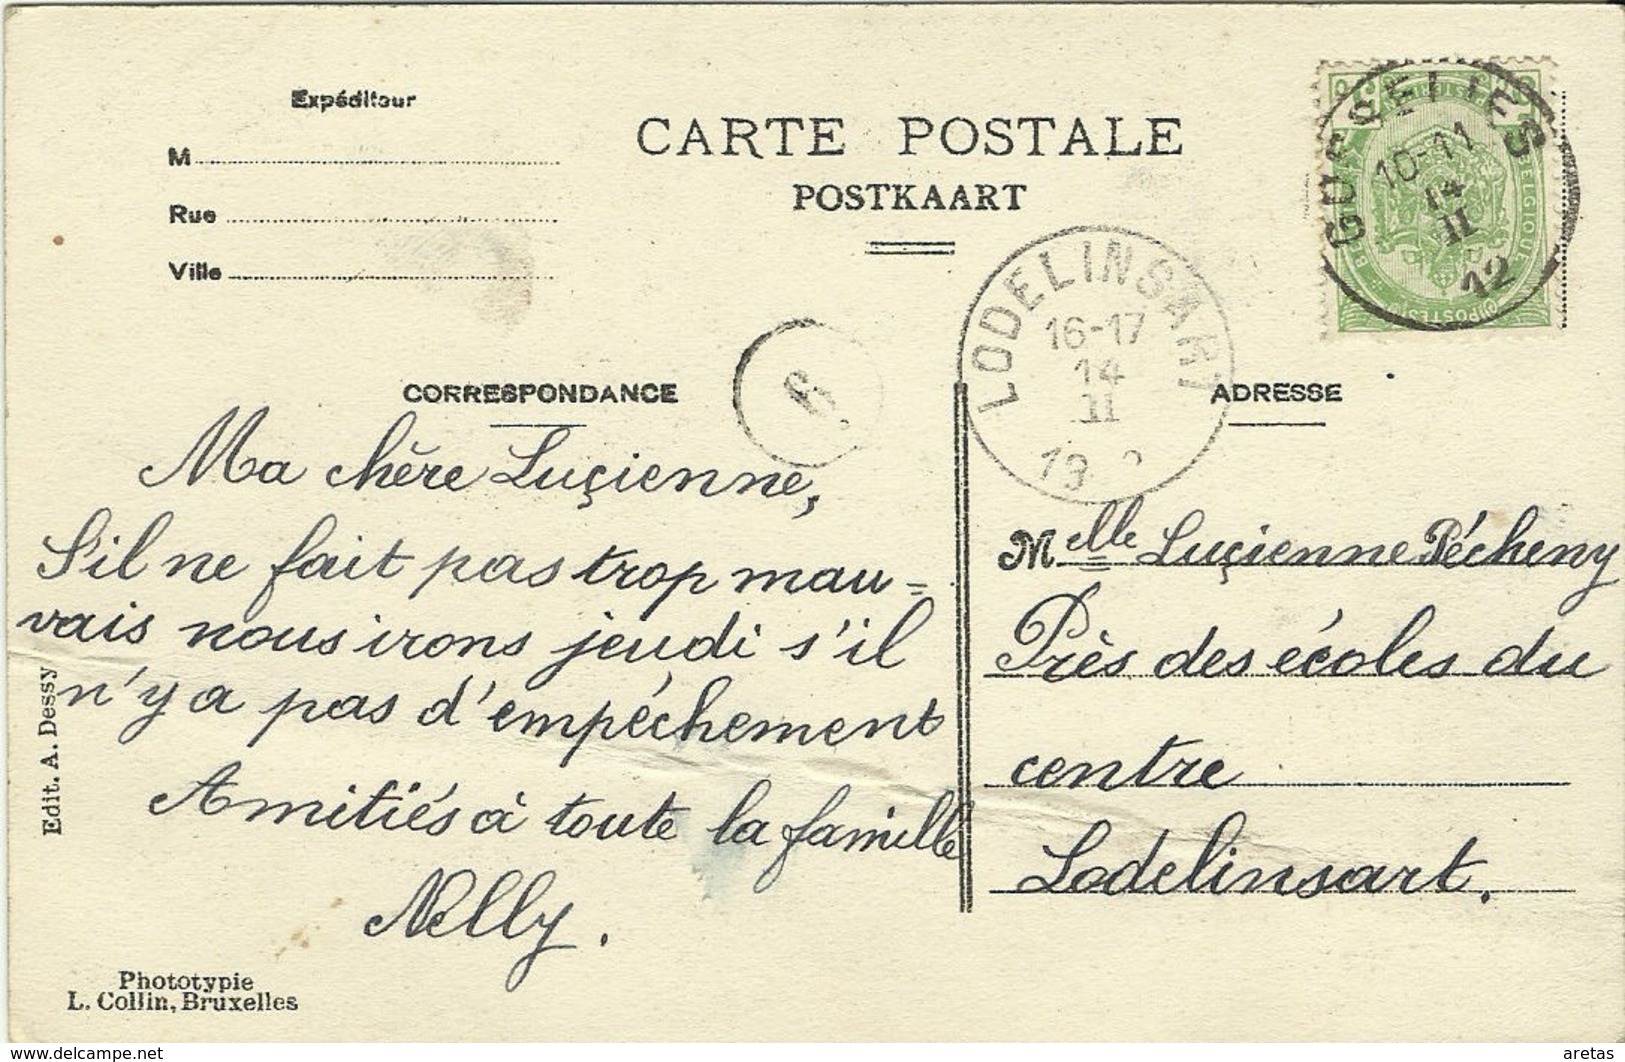 Expéditeur
M
Rue
Ville
CARTE POSTALE
POSTKAART
GOSSELIES
10-11
14
II
12
BELGIQUE
POSTES
LODELINSART
16-17
14
II
19
6
CORRESPONDANCE
ADRESSE
Ma chère Luçienne,
S'il ne fait pas trop mau=
vais nous irons jeudi s'il
n'y a pas d'empéchement
Amitiés à toute la famille
Nelly.
Melle Luçienne Pécheny
Près des écoles du
centre
Lodelinsart.
Edit. A. Dessy
Phototypie
L. Collin, Bruxelles
www.delcampe.net
aretas